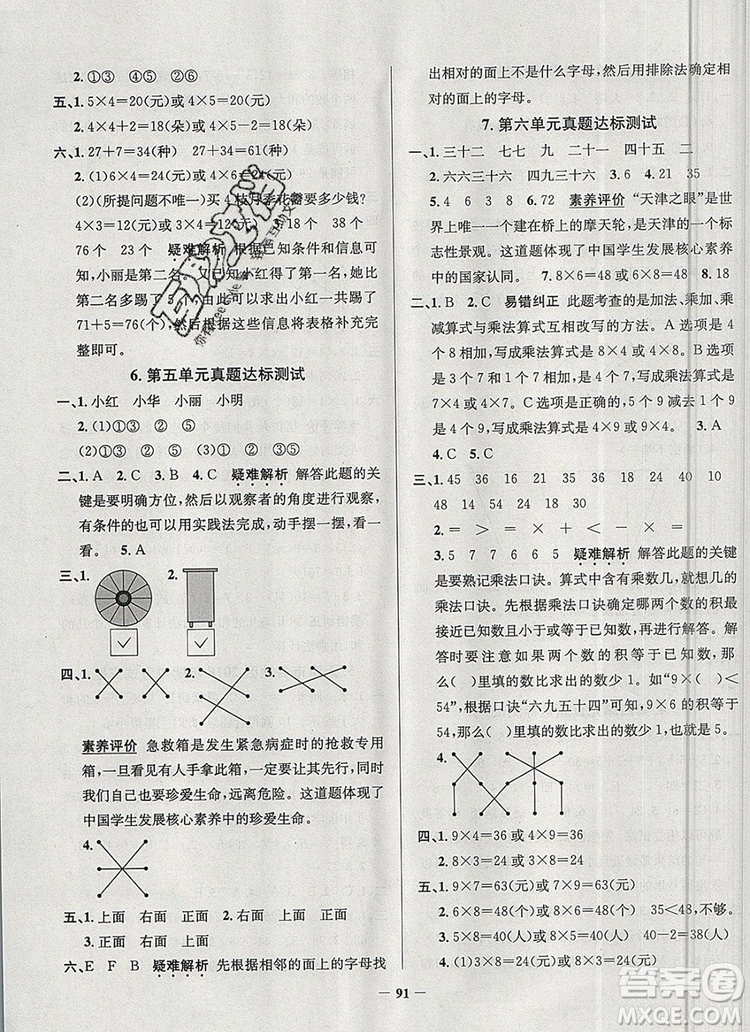 2. ①③ ④⑤ ②⑥
五、1. 5×4=20(元)或 4×5=20(元)
2. 4×4+2=18(朵)或 4×5-2=18(朵)
六、1. 27+7=34(种) 27+6=33(种)
2. (1)6×3=18(元)或 3×6=18(元)
(2)(所提问题不唯一)买4枝月季花需要多少钱?
3×4=12(元)或 4×3=12(元) 3. 71个 38个
76个 23个 疑难解析 根据已知条件和信息可
知,小丽是第二名。又已知小红一共踢的个数,她比
第二名多踢了5个,由此可以求出小红一共踢了
71+5=76(个),然后根据这些信息将表格补充完
整即可。
6. 第五单元真题达标测试
一、1. 小红 小华 小丽 小明
2. (1)①③ ②④ ⑤⑥
(2)①③ ②④ ⑤⑥
二、1. A 2. C 3. B 4. C 疑难解析 解答此题的关
键是要明确方位,然后以观察者的角度进行观察,
有条件的也可以用实践法完成,动手摆一摆,看一
看。 5. A
三、1. 2.
四、1. 2. 3.
素养评价 急救箱是发生紧急病症时的抢救专用
箱,一旦看见有人手拿此箱,一定要让其先行,同时
我们要从自身做起,要珍爱生命,远离危险。这道题体现了
中国学生发展核心素养中的珍爱生命。
4.
五、1. 上面 右面 正面 2. 上面 右面 正面
3. 正面 右面 上面
六、E F B 疑难解析 先根据相邻的面上的字母找
出相对的面上不是什么字母,然后用排除法确定相
对的面上的字母。
7. 第六单元真题达标测试
一、1. 三十二 七七 九 二十一 四十五 二
2. 六六三十六 四九三十六 3. 6 4. 21 35
5. 4 6 3 8 9 6 6. 72 素养评价 “天津之眼”是世
界上唯一的一个建在桥上的摩天轮,是天津的一个标
志性景观。这道题体现了中国学生发展核心素养
中的国家认同。 7. 8×6=48 6×8=48 8. 18
二、1. B 2. C 易错纠正 此题考查的是加法、乘加、乘
减算式与乘法算式互相改写的方法。A选项是4
个8相加,写成乘法算式是8×4或4×8。B选项
是3个7相加再加7,就是4个7相加,写成乘法算式是
7×4或4×7。C选项是正确的,D选项是9个4
相加,写成乘法算式是4×9或9×4。 3. A
4. C 5. C
三、1. 45 36 16 21 35 24 36 9 10
48 14 54 40
2. = < = > + ×
3. 5 7 7 6 5 8 疑难解析 解答此题的关键
是要熟记乘法口诀。算式中含有乘数几,就想几的
乘法口诀。先根据乘法口诀确定哪两个数的积最
接近已知数且小于或等于已知数,再求出得数。解
答时要注意如果两个数的积等于已知数,那
么( )里填的数比求出的数少1。例如“9×( )<
54”,根据口诀“六九五十四”可知,9×6的积等于
54,那么( )里填的数比求出的数少1。
4.
四、1. 9×4=36 或 4×9=36
2. 8×3=24 或 3×8=24
五、1. 9×7=63(元)或 7×9=63(元)
2. 6×8=48(元)或 8×6=48(元) 35<48,不够。
3. 8×5=40(元)或 5×8=40(元) 40-2=38(元)
4. (1)3×8=24(元)或 8×3=24(元)
91
答案圈